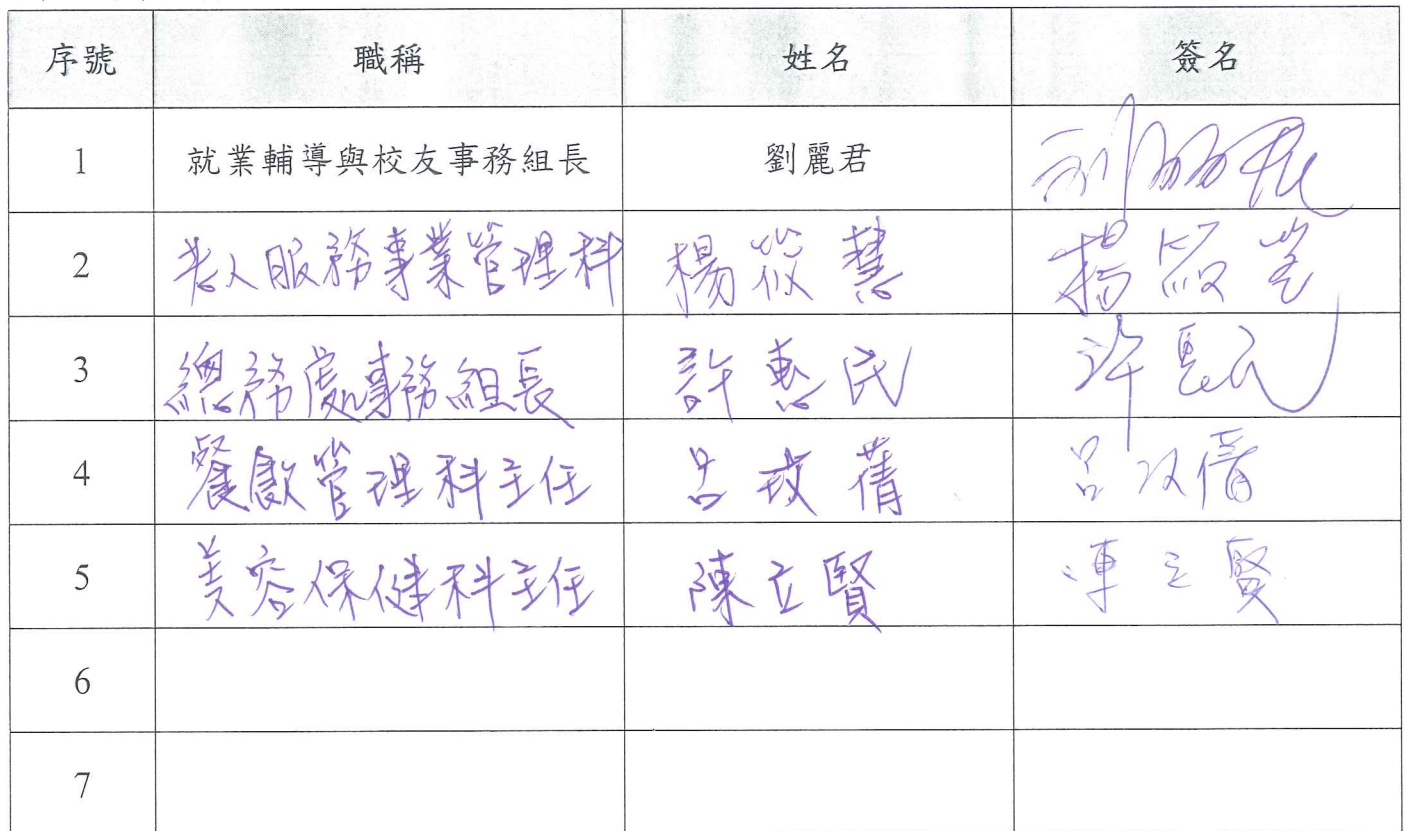 序號 職稱 姓名 簽名
1 就業輔導與校友事務組長 劉麗君 劉麗君
2 老人服務事業管理科 楊筱慧 楊筱慧
3 總務處事務組長 許惠民 許惠民
4 餐飲管理科主任 呂玫蒨
5 美容保健科主任 陳立賢 陳立賢
6
7